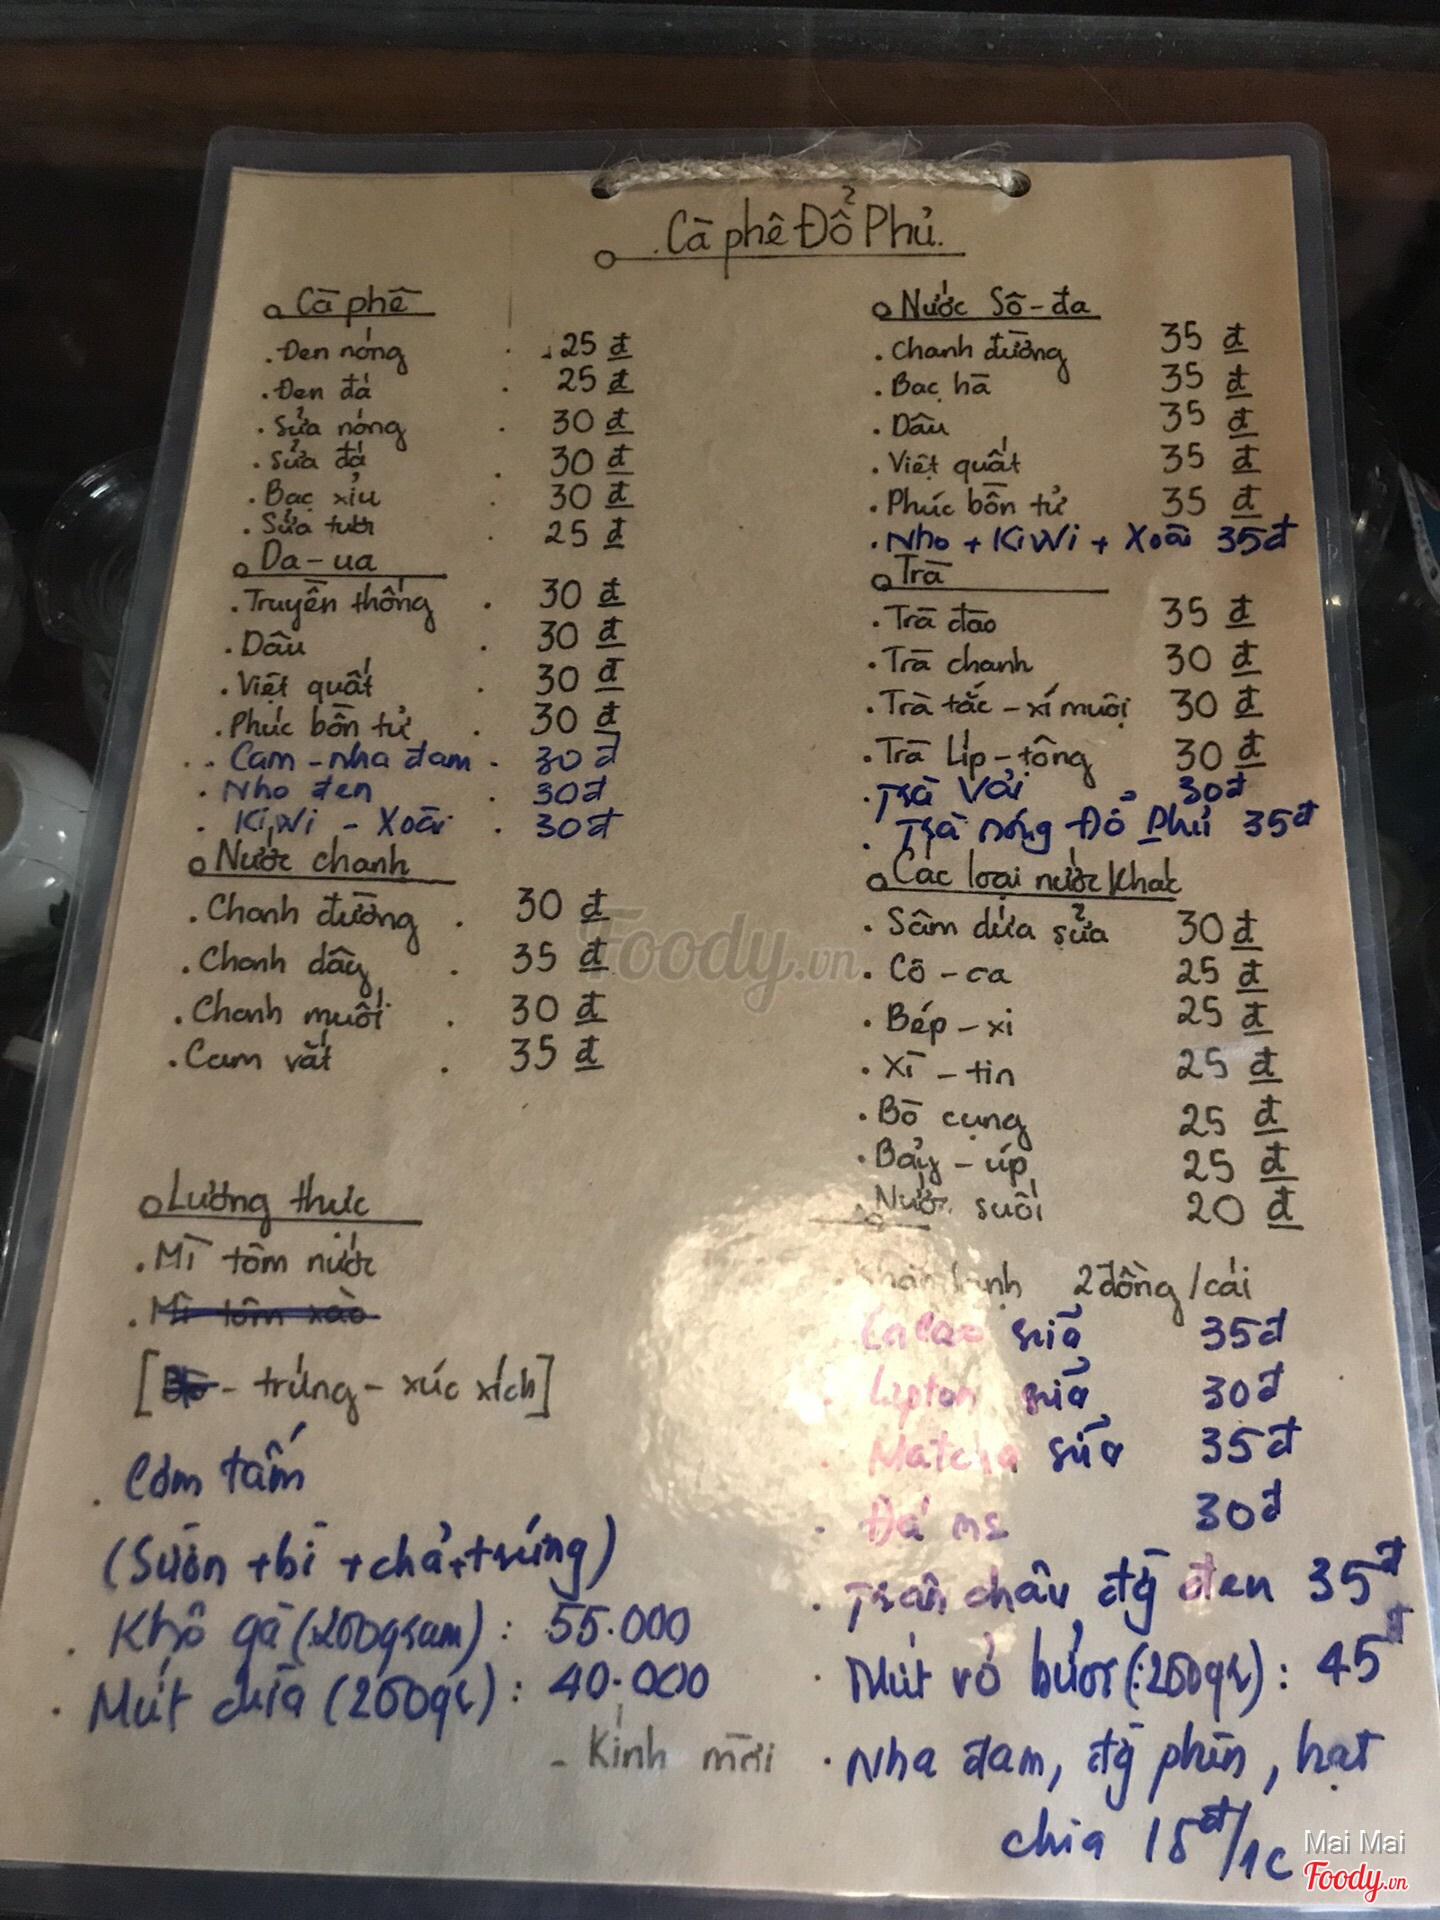 Cà phê Đổ Phủ.
Cà phê
. Đen nóng . 25 đ
. Đen đá . 25 đ
. Sửa nóng . 30 đ
. Sửa đá . 30 đ
. Bạc xỉu . 30 đ
. Sửa tươi . 25 đ
Da-ua
. Truyền thống . 30 đ
. Dâu . 30 đ
. Việt quất . 30 đ
. Phúc bồn tử . 30 đ
. Cam - nha đam . 30 đ
. Nho đen . 30 đ
. KiWi - Xoài . 30 đ
Nước chanh
. Chanh đường . 30 đ
. Chanh dây . 35 đ
. Chanh muối . 30 đ
. Cam vắt . 35 đ
Lương thực
. Mì tôm nước
. Mì tôm xào
[ - trứng - xúc xích]
. Cơm tấm
(Sườn + bì + chả + trứng)
. Khô gà (200gram) : 55.000
. Mứt dừa (200gr) : 40.000
- Kính mời
Nước Sô-đa
. Chanh đường 35 đ
. Bạc hà 35 đ
. Dâu 35 đ
. Việt quất 35 đ
. Phúc bồn tử 35 đ
. Nho + KiWi + Xoài 35 đ
Trà
. Trà đào 35 đ
. Trà chanh 30 đ
. Trà tắc - xí muội 30 đ
. Trà Líp-tông 30 đ
. Trà Vải 30 đ
. Trà nóng Đổ Phủ 35 đ
Các loại nước khác
. Sâm dứa sửa 30 đ
. Cô-ca 25 đ
. Bép-xi 25 đ
. Xì-tin 25 đ
. Bò cụng 25 đ
. Bảy-úp 25 đ
. Nước suối 20 đ
. Khăn lạnh 2 đồng/cái
Cacao sữa 35 đ
. Lipton sữa 30 đ
. Matcha sữa 35 đ
. Đá me 30 đ
. Trân châu, đỹ đen 35 đ
. Mứt vỏ bưởi (:200gr) : 45 đ
. Nha đam, đỹ phin, hạt
chia 15 đ/1c
Foody.vn
Mai Mai
Foody.vn